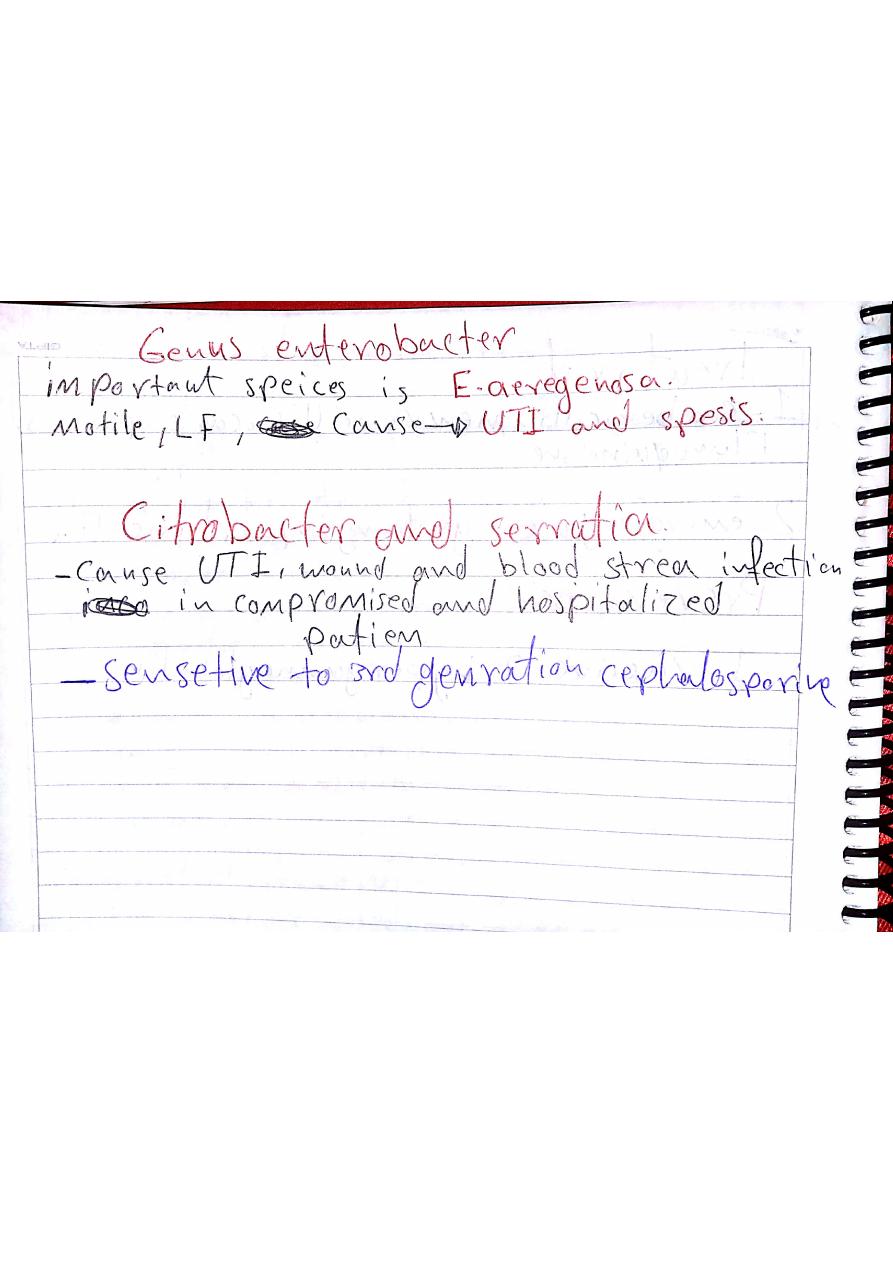 Genus enterobacter
important speices is E.aeregenosa.
Motile, LF, Cause → UTI and spesis.
Citrobacter and serratia.
- Cause UTI, wound and blood strea infection
in compromised and hospitalized
patien
- Sensetive to 3rd genration cephalosporive